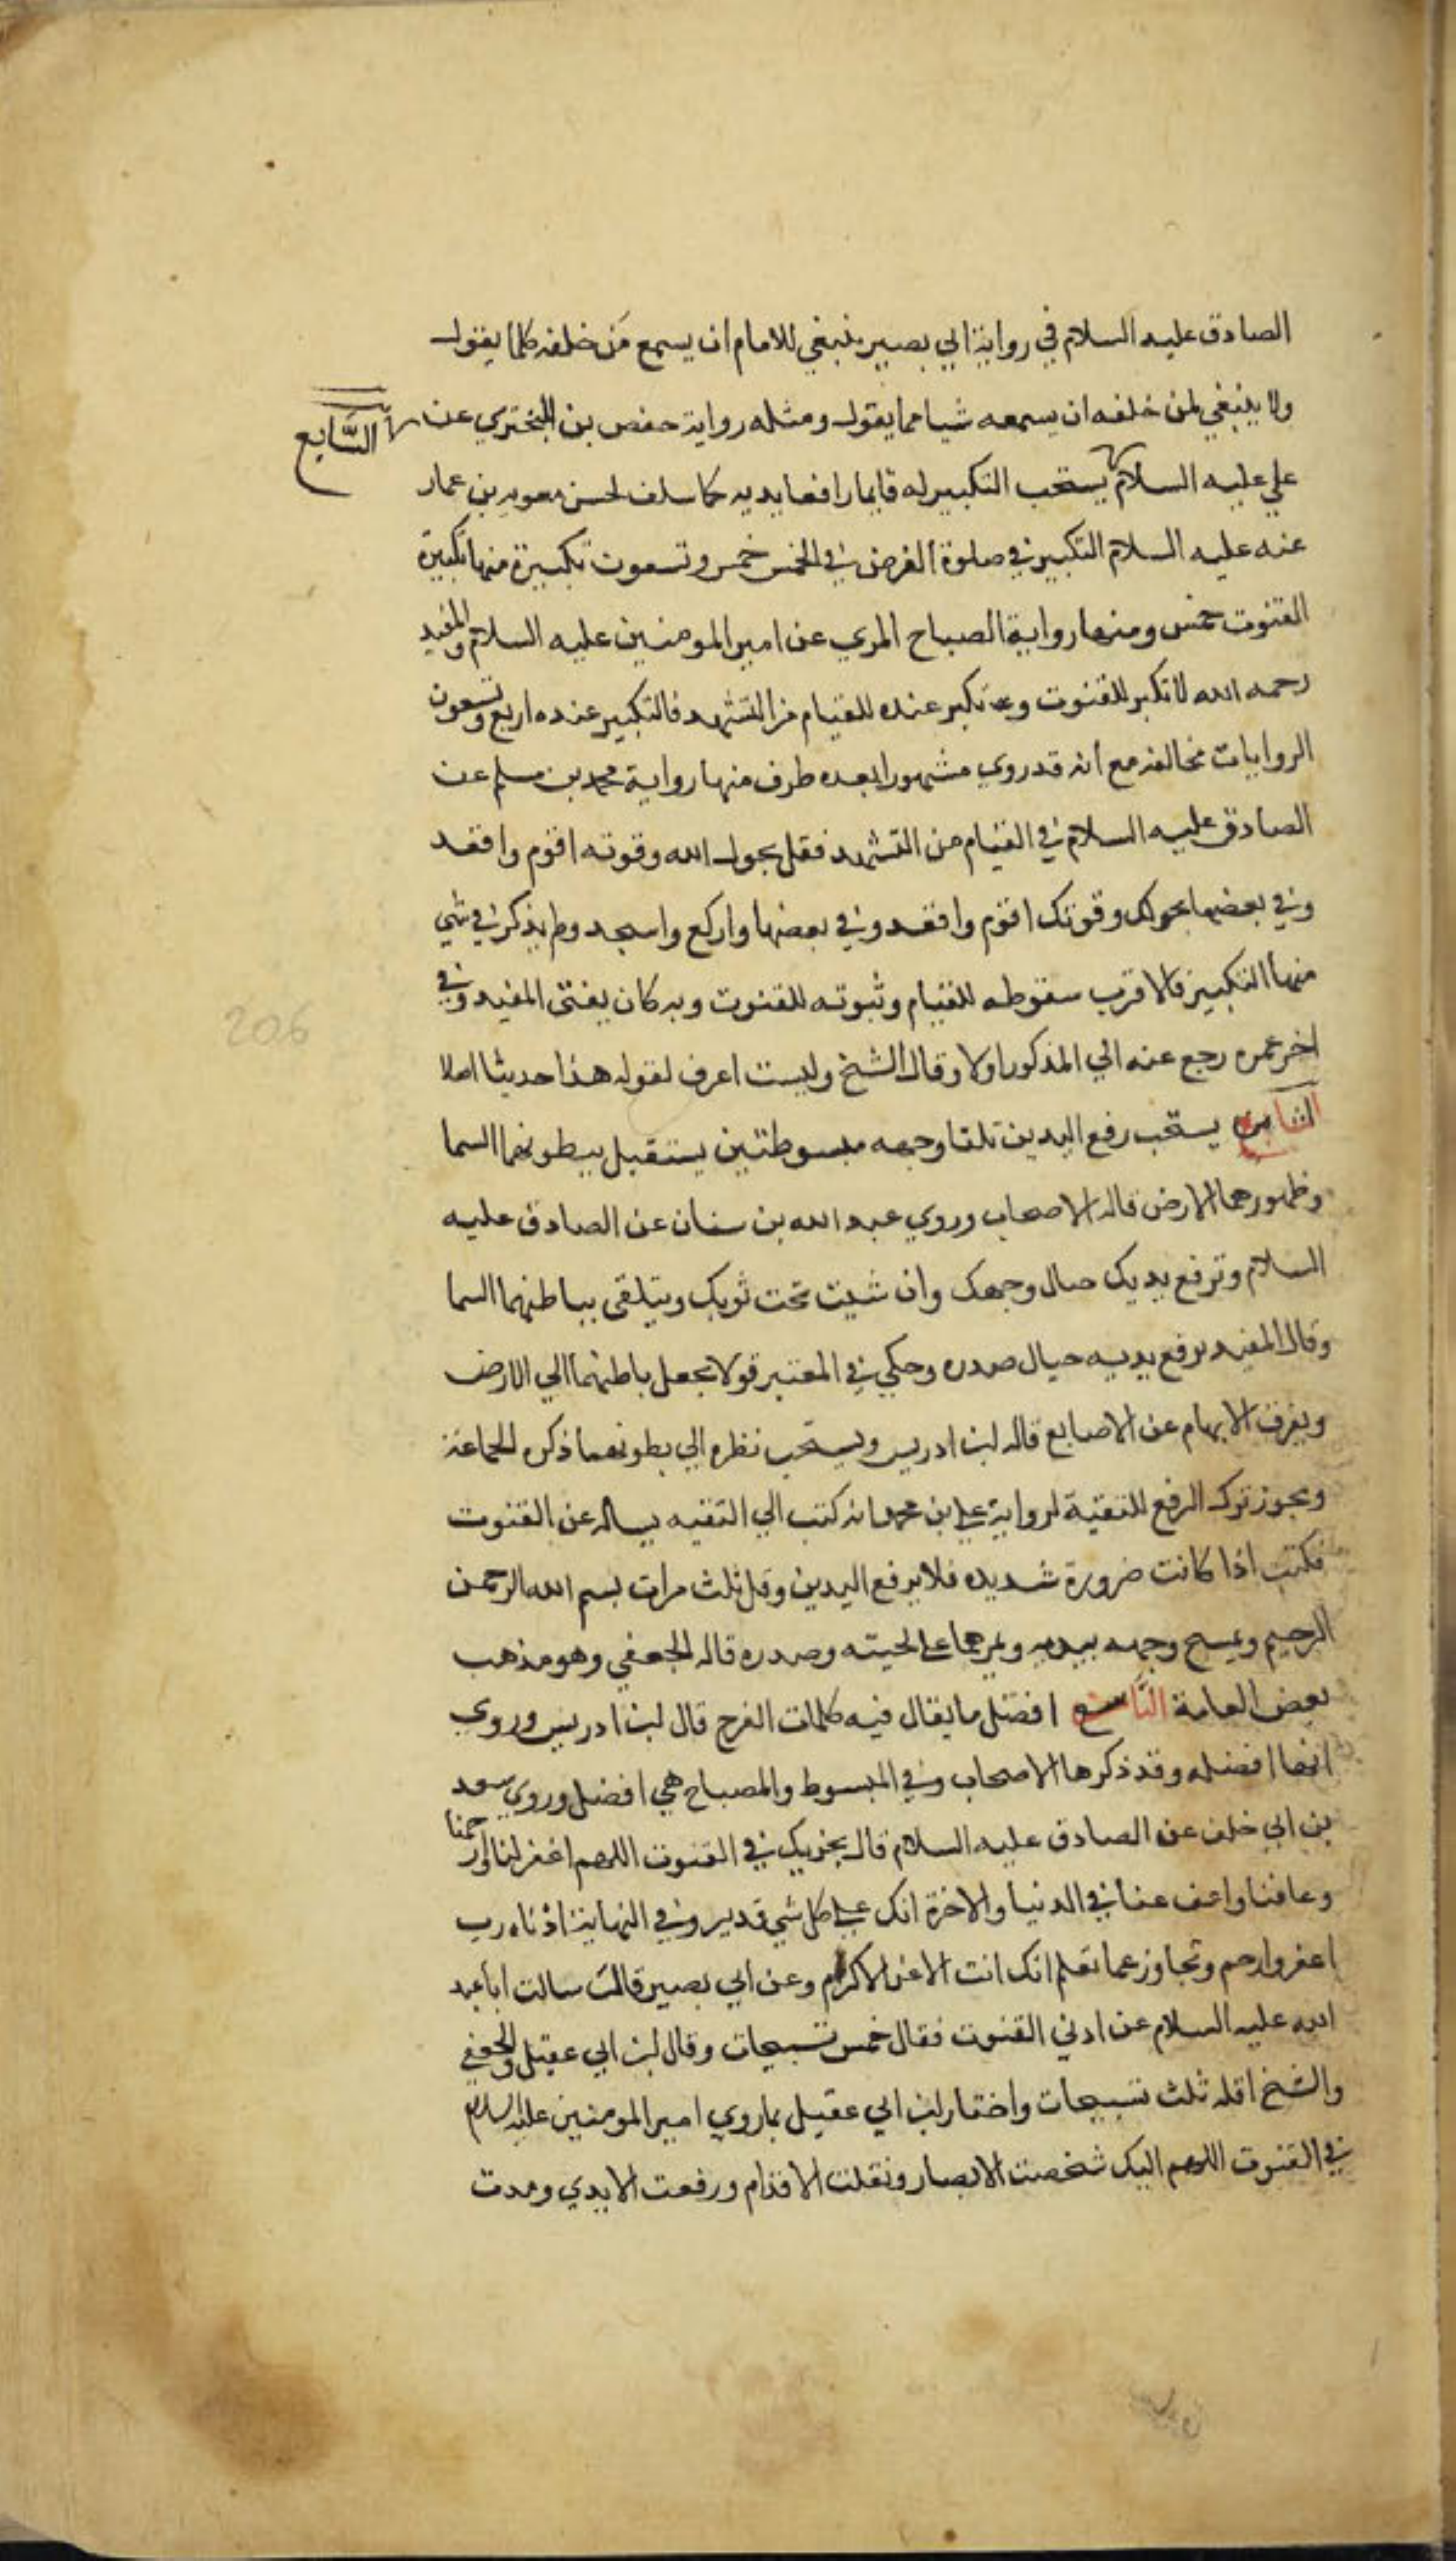 الصادق عليه السلام في رواية ابي بصير ينبغي للامام ان يسمع من خلفه كلما يقول
ولا ينبغي لمن خلفه ان يسمعه شيا مما يقول ومثله رواية حفص بن البختري عن
السَّابع
علي عليه السلام يستحب التكبير له قايما رافعا يديه كما سلف لحسن معوية بن عمار
عنه عليه السلام التكبير في صلوة الفرض في الخمس خمس وتسعون تكبيرة منها تكبيرة
القنوت خمس ومنها رواية الصباح المزي عن امير المومنين عليه السلام والمفيد
رحمه الله لا تكبير للقنوت و تكبير عنده للقيام من التشهد فالتكبير عنده اربع وتسعون
الروايات مخالفه مع انه قد روي مشهورا بعده طرف منها رواية محمد بن مسلم عن
الصادق عليه السلام في القيام من التشهد فقل بحول الله وقوته اقوم واقعد
وفي بعضها بحولك وقوتك اقوم واقعد وفي بعضها واركع واسجد ولم يذكر في شي
منها التكبير فالاقرب سقوطه للقيام وثبوته للقنوت وبه كان يفتى المفيد وفي
اخر عمره رجع عنه الي المذكور اولا وقال الشيخ وليست اعرف لقوله هذا حديثا اصلا
الثامن يستحب رفع اليدين تلقا وجهه مبسوطتين يستقبل ببطونهما السما
وظهورهما الارض قاله الاصحاب وروي عبد الله بن سنان عن الصادق عليه
السلام وترفع يديك حيال وجهك وان شيت تحت ثوبك وتتلقى بباطنهما السما
وقال المفيد يرفع يديه حيال صدره وحكي في المعتبر قولا بجعل باطنهما الي الارض
ويفرق الابهام عن الاصابع قاله ابن ادريس ويستحب نظره الي بطونهما ذكره الجماعة
ويجوز ترك الرفع للتقية لرواية علي بن محمد انه كتب الي الفقيه يساله عن القنوت
فكتب اذا كانت ضرورة شديده فلا يرفع اليدين وقل ثلث مرات بسم الله الرحمن
الرحيم ويمسح وجهه بيديه ويمرهما على لحيته وصدره قاله الجعفي وهو مذهب
بعض العامة التاسع افضل ما يقال فيه كلمات الفرج قال ابن ادريس وروي
انها افضله وقد ذكرها الاصحاب وفي المبسوط والمصباح هي افضل وروي سعد
بن ابي خلف عن الصادق عليه السلام قال يجزيك في القنوت اللهم اغفر لنا وارحمنا
وعافنا واعف عنا في الدنيا والاخرة انك علي كل شي قدير وفي النهاية ادناه رب
اغفر وارحم وتجاوز عما تعلم انك انت الاعز الاكرم وعن ابي بصير قال سالت ابا عبد
الله عليه السلام عن ادني القنوت فقال خمس تسبيحات وقال ابن ابي عقيل والجعفي
والشيخ اقله ثلث تسبيحات واختار ابن ابي عقيل بما روي امير المومنين عليه السلام
في القنوت اللهم اليك شخصت الابصار ونقلت الاقدام ورفعت الايدي ومدت
206